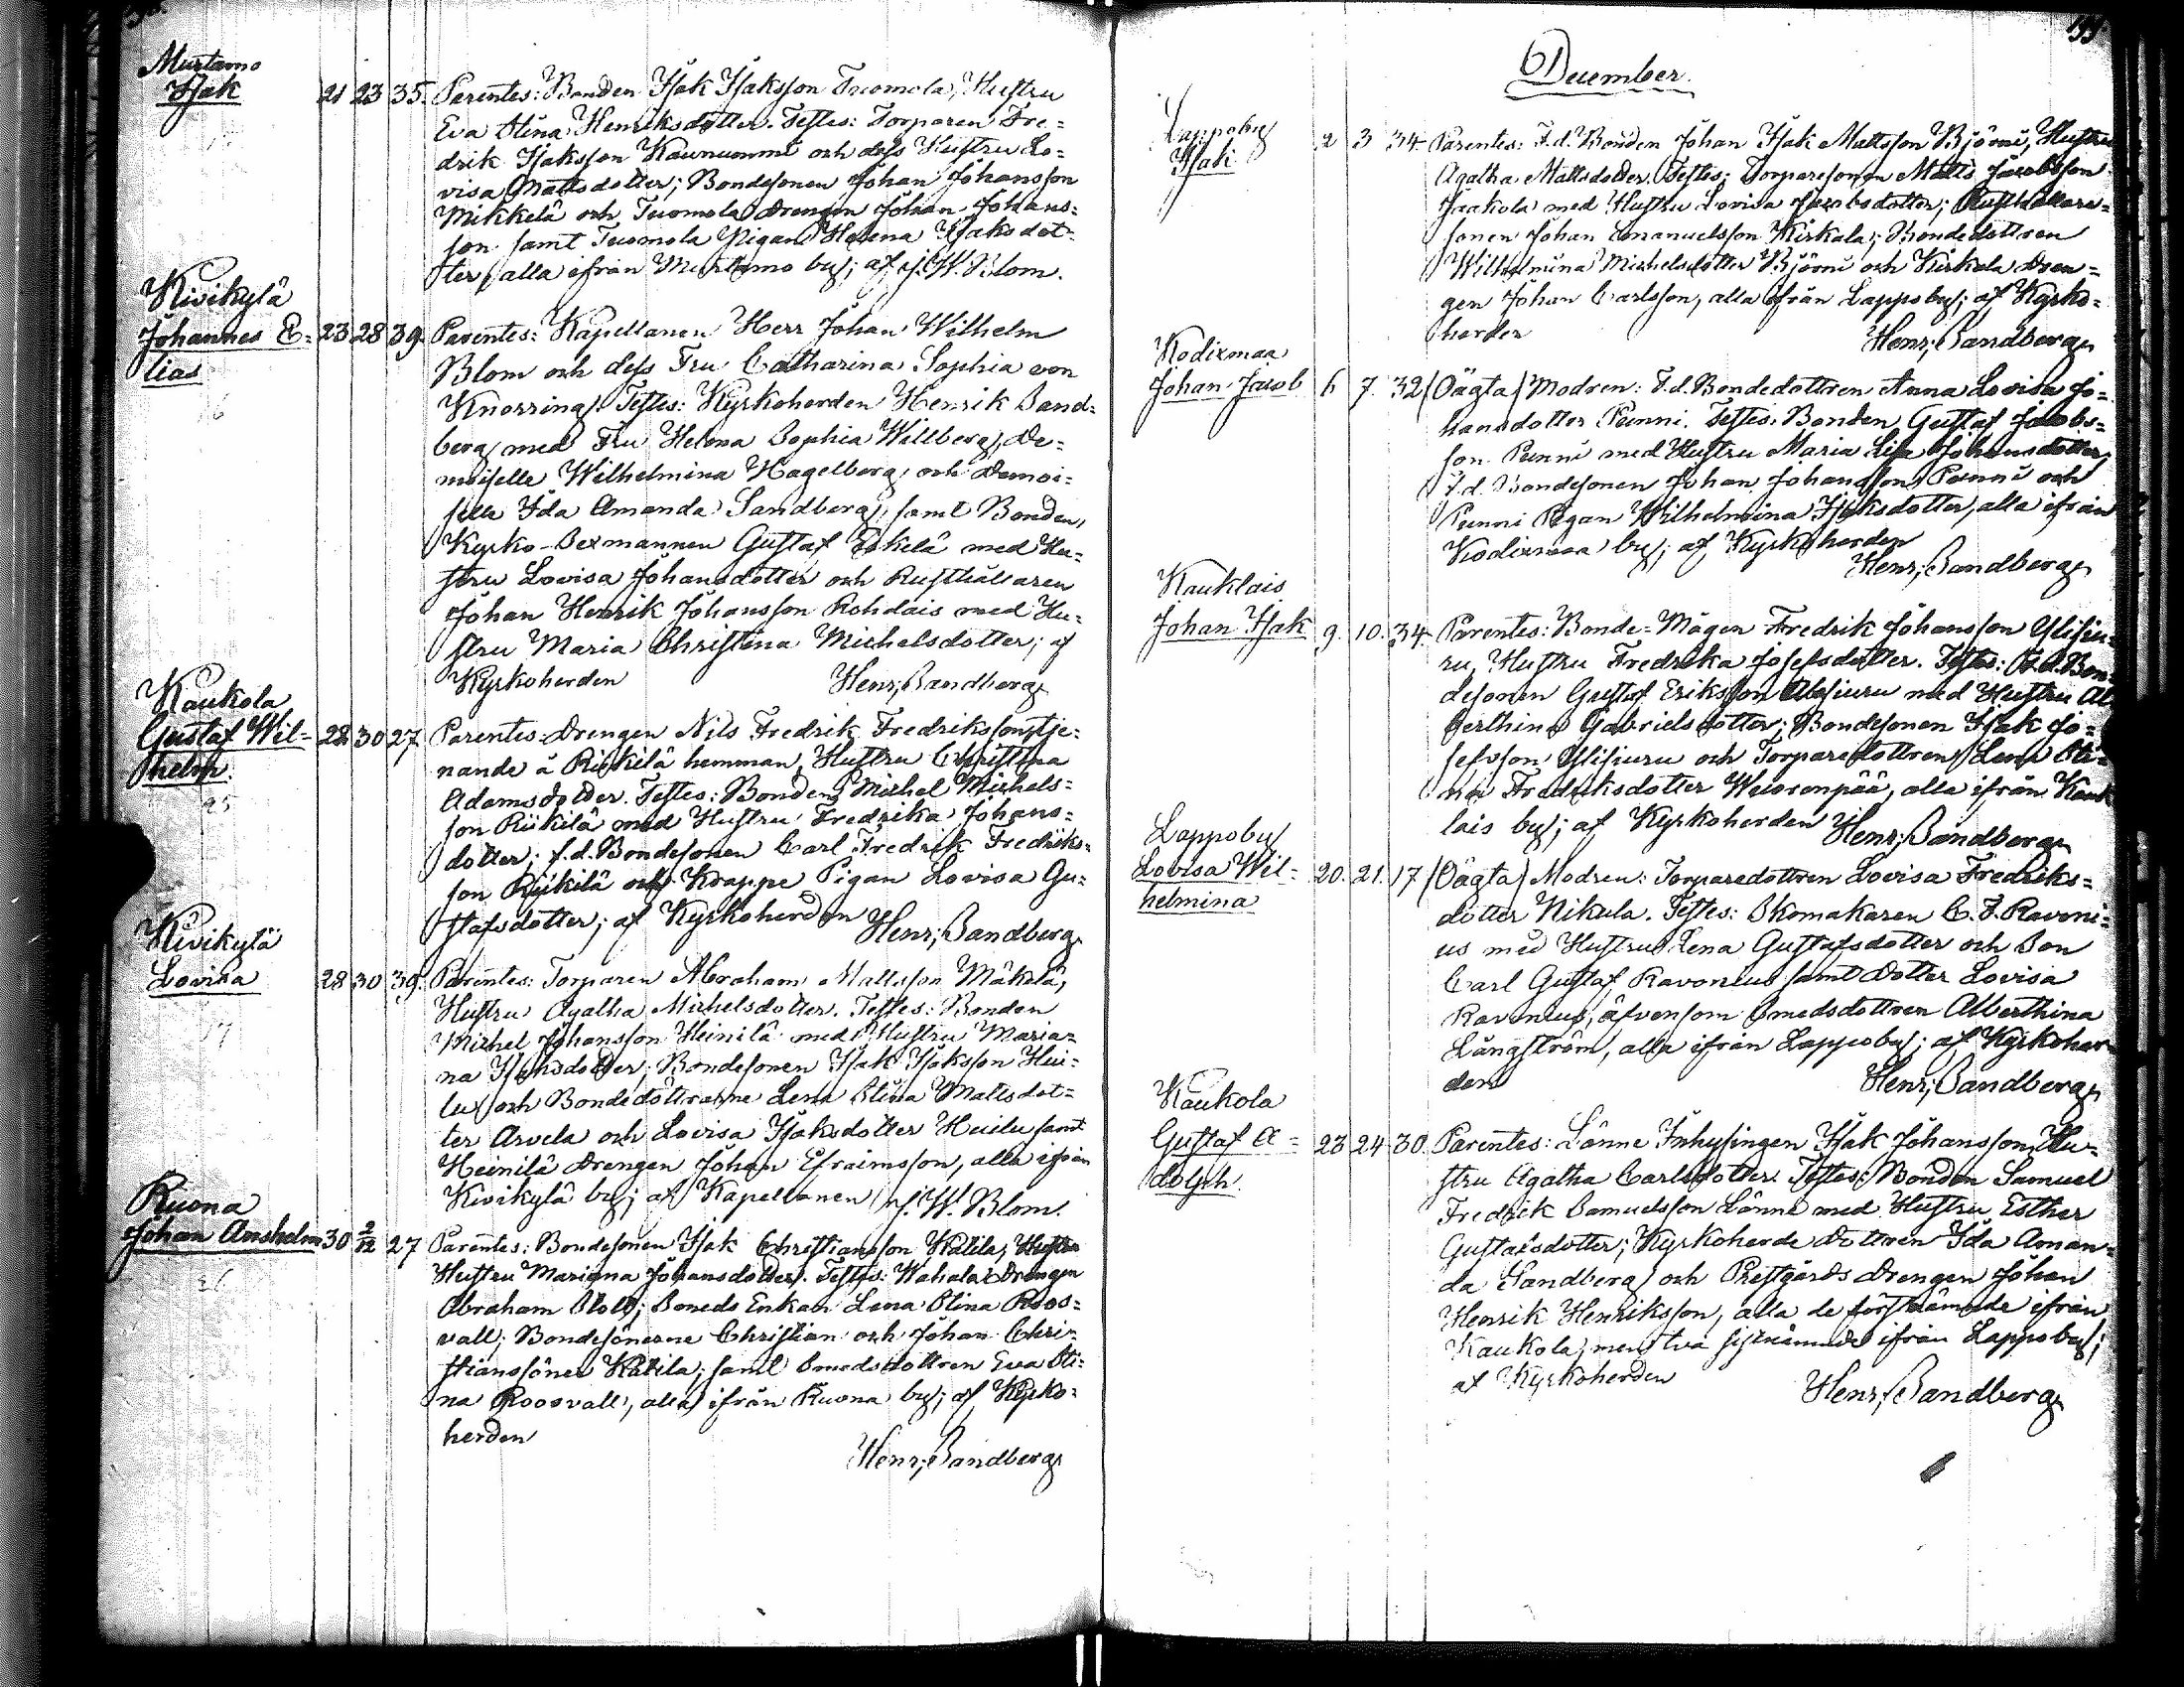 Murtamo
Isak 21 23 35. Parentes: Bonden Isak Isaksson Tuomola, Hustru
Eva Stina Henriksdotter. Testes: Torparen Fre=
drik Isaksson Kaunummi och dess Hustru Lo=
visa Mattsdotter; Bondesonen Johan Johansson
Mikkelä och Tuomola Drengen Johan Johans=
son samt Tuomola Pigan Helena Isaksdot=
ter, alla ifrån Murtamo by; af J. W. Blom.
Kivikylä
Johannes E= 23 28 39. Parentes: Kapellanen Herr Johan Wilhelm
lias Blom och dess Fru Catharina Sophia von
Knorring. Testes: Kyrkoherden Henrik Sand=
berg med Fru Helena Sophia Willberg, De=
moiselle Wilhelmina Hagelberg och Demoi=
selle Ida Amanda Sandberg, samt Bonden,
Kyrko-Sexmannen Gustaf Eskelä med Hu=
stru Lovisa Johansdotter och Rusthållaren
Johan Henrik Johansson Rohdais med Hu=
stru Maria Christina Michelsdotter; af
Kyrkoherden Henr; Sandberg
Kaukola
Gustaf Wil= 28 30 27 Parentes: Drengen Nils Fredrik Fredriksson, tje=
helm. nande å Riikilä hemman, Hustru Christina
Adamsdotter. Testes: Bonden Michel Michels=
son Riikilä med Hustru Fredrika Johans=
dotter; f.d. Bondesonen Carl Fredrik Fredriks=
son Riikilä och Knappe Pigan Lovisa Gu=
stafsdotter; af Kyrkoherden Henr; Sandberg
Kivikylä
Lovisa 28 30 39. Parentes: Torparen Abraham Mattsson Mäkelä,
Hustru Agatha Michelsdotter. Testes: Bonden
Michel Johansson Heinilä med Hustru Maria=
na Isaksdotter; Bondesonen Isak Isaksson Hei=
lu och Bondedöttrarne Lena Stina Mattsdot=
ter Arvela och Lovisa Isaksdotter Heilu samt
Heinilä Drengen Johan Efraimsson, alla ifrån
Kivikylä by; af Kapellanen J. W. Blom.
Ruona
Johan Anshelm 30 2/12 27 Parentes: Bondesonen Isak Christiansson Kätilä, Hustru
Hustru Mariana Johansdotter. Testes: Wahala Drengen
Abraham Stolt; Smeds Enkan Lena Stina Roos=
vall; Bondesönerne Christian och Johan Chri=
stianssöner Kätilä; samt Smedsdottren Eva Sti=
na Roosvall, alla ifrån Ruona by; af Kyrko=
herden
Henr; Sandberg
December.
Lappoby
Isak 2 3 34 Parentes: F.d. Bonden Johan Isak Mattsson Björni, Hustru
Agatha Mattsdotter. Testes: Torparesonen Matts Jacobsson
Jaakola med Hustru Lovisa Jacobsdotter; Rusthållare=
sonen Johan Emanuelsson Kirkala; Bondedottren
Wilhelmina Michelsdotter Björni och Kirkala Dren=
gen Johan Carlsson, alla ifrån Lappoby; af Kyrko=
herden Henr; Sandberg
Kodixmaa
Johan Jacob 6 7. 32 (Oägta) Modren: F.d. Bondedottren Anna Lovisa Jo=
hansdotter Punni. Testes: Bonden Gustaf Jacobs=
son Punni med Hustru Maria Lisa Johansdotter,
f.d. Bondesonen Johan Johansson Punni och
Punni Pigan Wilhelmina Isaksdotter, alla ifrån
Kodixmaa by; af Kyrkoherden
Henr; Sandberg
Kauklais
Johan Isak 9. 10. 34. Parentes: Bonde=Mågen Fredrik Johansson Ylisiu=
ru, Hustru Fredrika Josefsdotter. Testes: F.d. Bon=
desonen Gustaf Eriksson Alasiuru med Hustru Al=
berthina Gabrielsdotter; Bondesonen Isak Jo=
sefsson Ylisiuru och Torparedottren Lena Sti=
na Fredriksdotter Wuorenpää, alla ifrån Kauk
lais by; af Kyrkoherden Henr; Sandberg
Lappoby
Lovisa Wil= 20. 21. 17 (Oägta) Modren: Torparedottren Lovisa Fredriks=
helmina dotter Nikula. Testes: Skomakaren C. F. Ravoni=
us med Hustru Lena Gustafsdotter och Son
Carl Gustaf Ravonius samt Dotter Lovisa
Ravonius, äfvensom Smedsdottren Alberthina
Långström, alla ifrån Lappoby; af Kyrkoher=
den Henr; Sandberg
Kaukola
Gustaf A= 23 24 30. Parentes: Länne Inhysingen Isak Johansson, Hu=
dolph. stru Agatha Carlsdotter. Testes: Bonden Samuel
Fredrik Samuelsson Länne med Hustru Esther
Gustafsdotter; Kyrkoherde Dottren Ida Aman=
da Sandberg och Prestgårds Drengen Johan
Henrik Henriksson, alla de förstnämnde ifrån
Kaukola, men två sistnämnde ifrån Lappoby;
af Kyrkoherden Henr; Sandberg